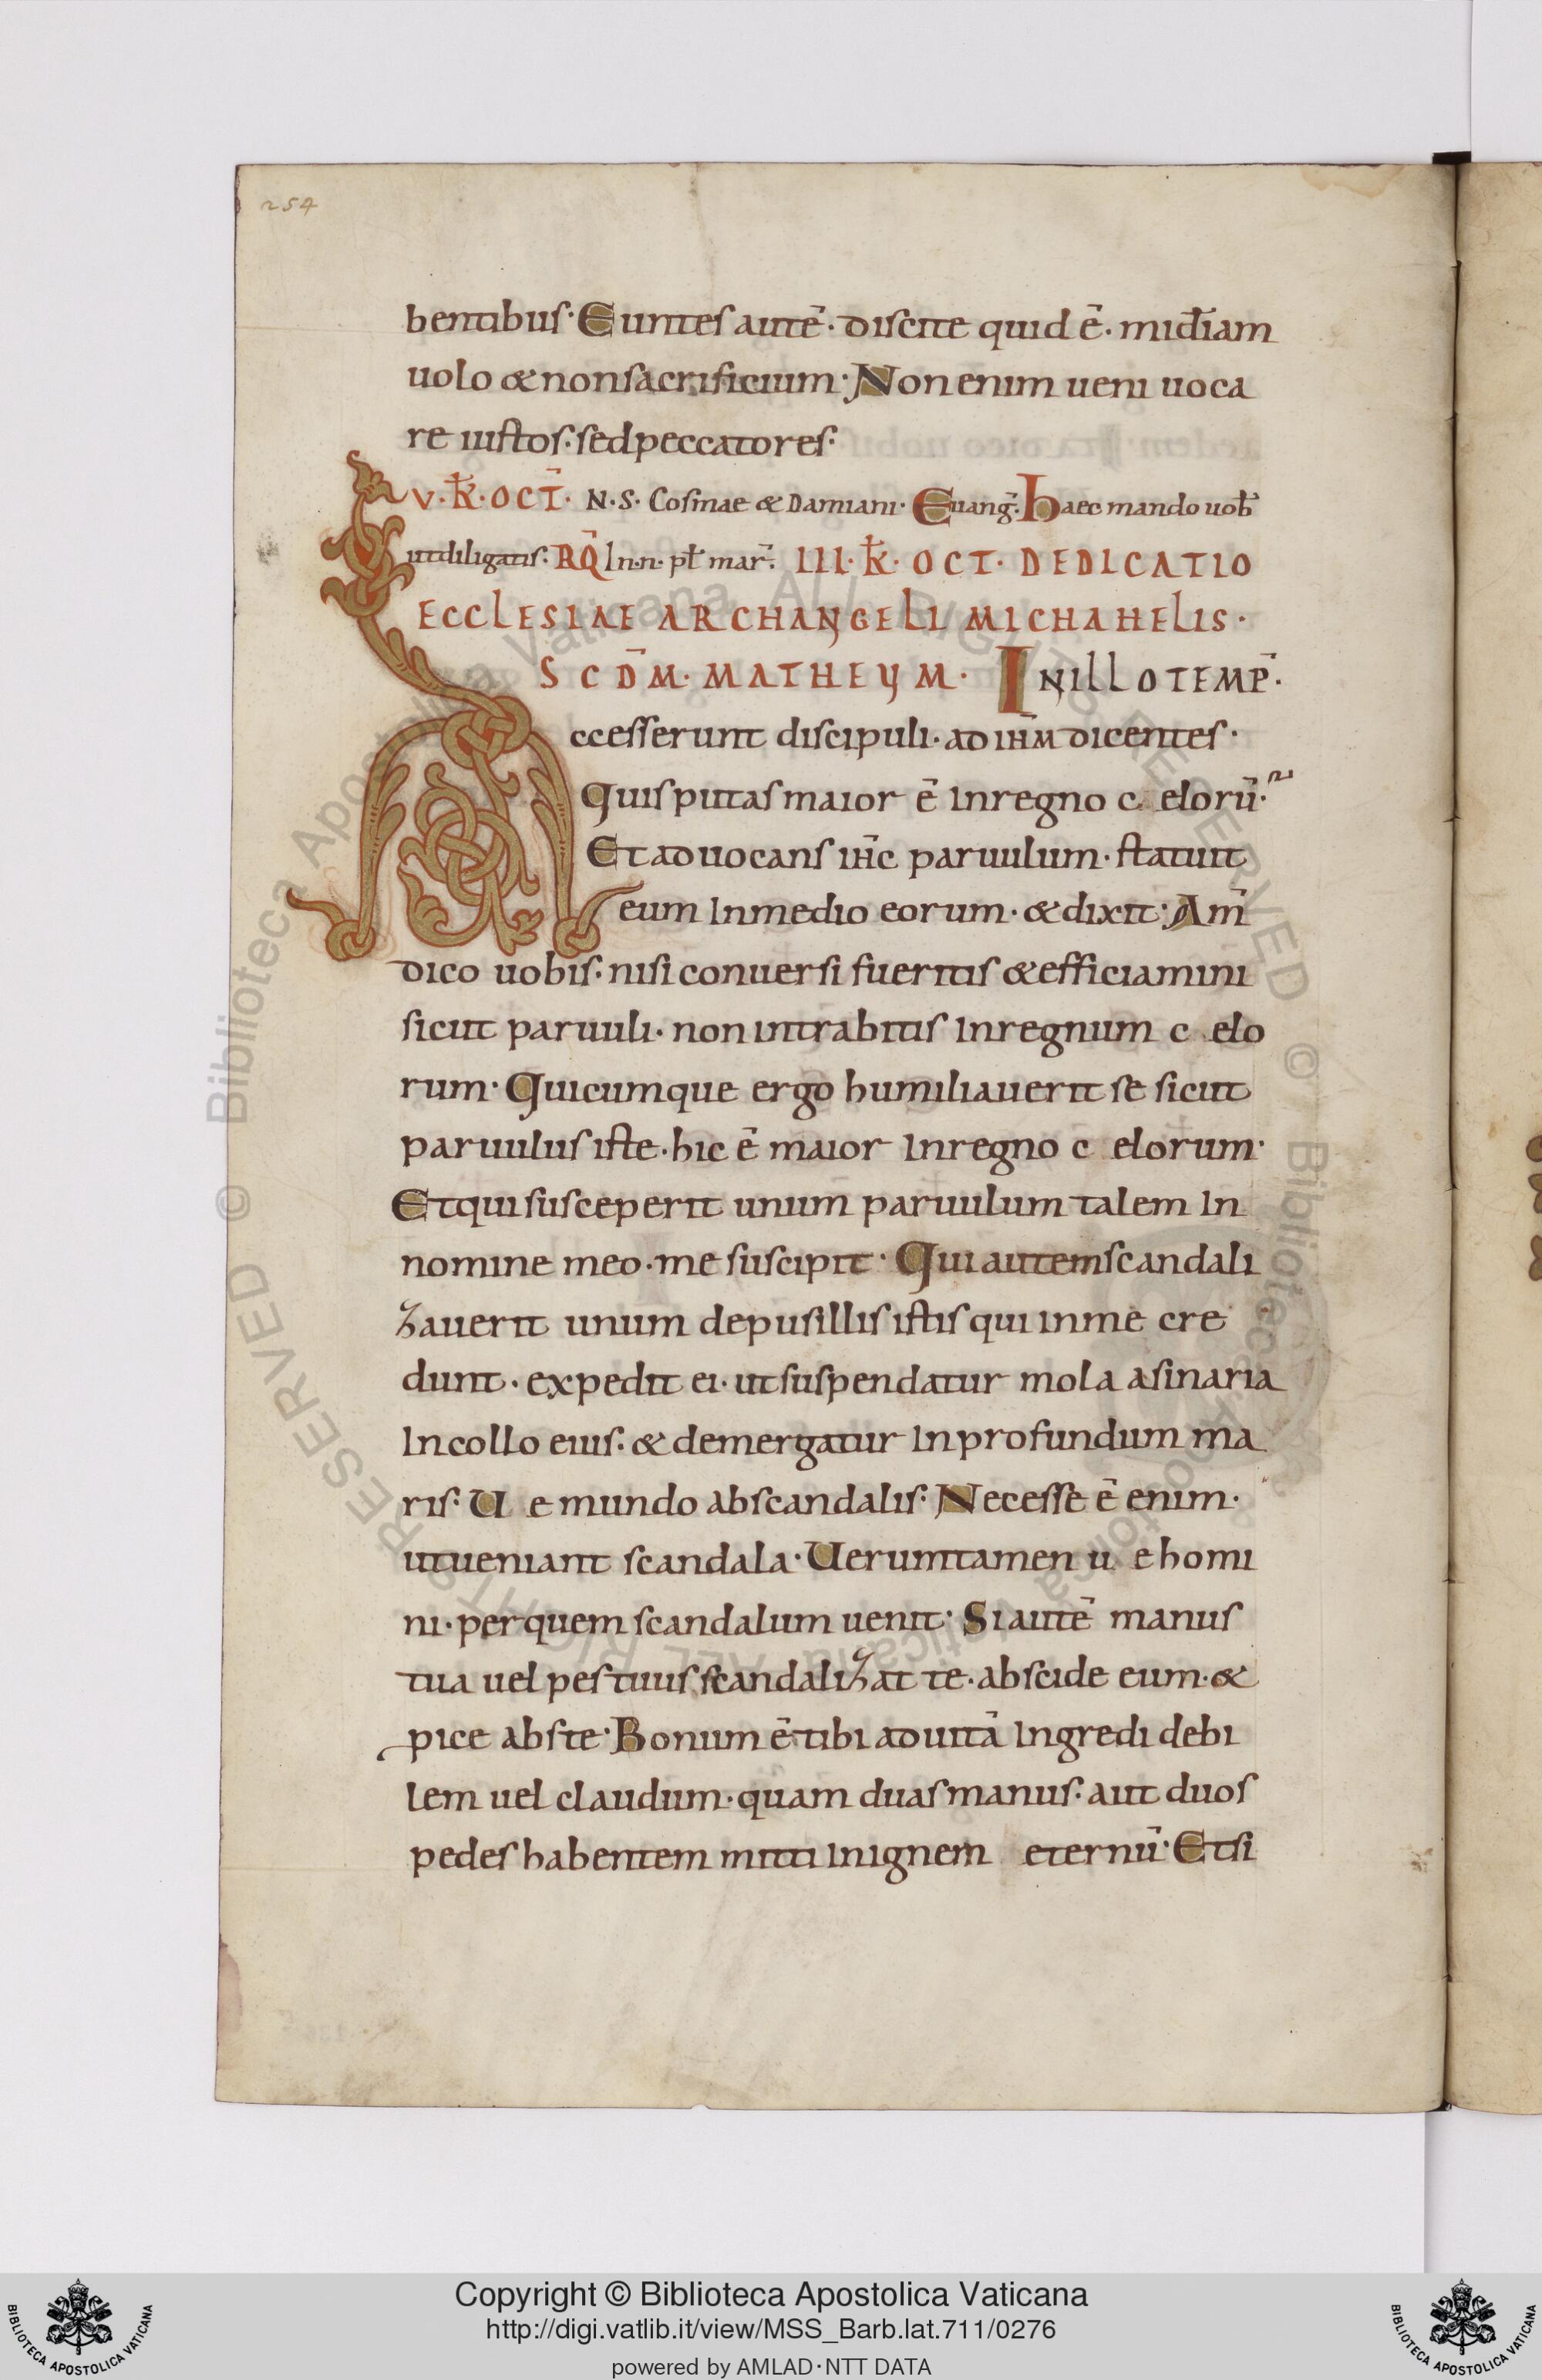 254
bentibus· Euntes autē· discite quid ē· mid̄iam
uolo & non sacrificium· Non enim ueni uoca
re iustos· sed peccatores·
V·K̄·OCT̄· N·S· Cosmae & Damiani· Euanḡ· haec mando uob̄
ut diligatis· RQ̄ In·n· pt̄ mar̄· III·K̄·OCT· DEDICATIO
ECCLESIAE ARCHANGELI MICHAHELIS·
SCD̄M· MATHEUM· IN ILLO TEMP̄·
Accesserunt discipuli· ad ih̄m dicentes·
Quis putas maior ē in regno c elorū·
Et aduocans ih̄c paruulum· statuit
eum in medio eorum· & dixit· Am̄
dico uobis· nisi conuersi fueritis & efficiamini
sicut paruuli· non intrabitis in regnum c elo
rum· Quicumque ergo humiliauerit se sicut
paruulus iste· hic ē maior in regno c elorum·
Et qui susceperit unum paruulum talem in
nomine meo· me suscipit· Qui autem scandali
zauerit unum de pusillis istis qui in me cre
dunt· expedit ei· ut suspendatur mola asinaria
in collo eius· & demergatur in profundum ma
ris· U e mundo ab scandalis· Necesse ē enim·
ut ueniant scandala· Uerumtamen u e homi
ni· per quem scandalum uenit· Si autē manus
tua uel pes tuus scandalizat te· abscide eum· &
pice abs te· Bonum ē tibi ad uitā ingredi debi
lem uel claudum· quam duas manus· aut duos
pedes habentem mitti in ignem eternū· Et si
Copyright © Biblioteca Apostolica Vaticana
http://digi.vatlib.it/view/MSS_Barb.lat.711/0276
powered by AMLAD·NTT DATA
BIBLIOTECA APOSTOLICA VATICANA
BIBLIOTECA APOSTOLICA VATICANA